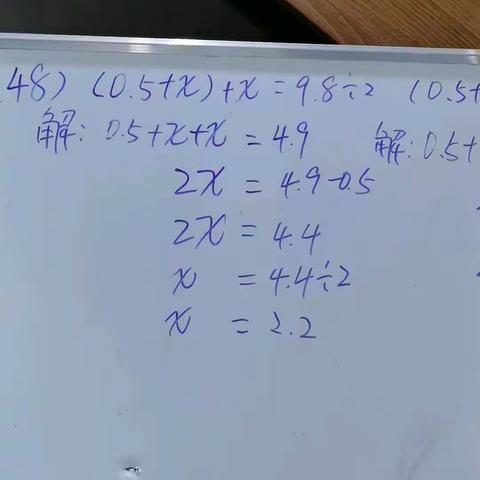 48) (0.5+x)+x=9.8÷2 (0.5+
解: 0.5+x+x=4.9 解: 0.5+
2x=4.9-0.5
2x=4.4
x=4.4÷2
x=2.2